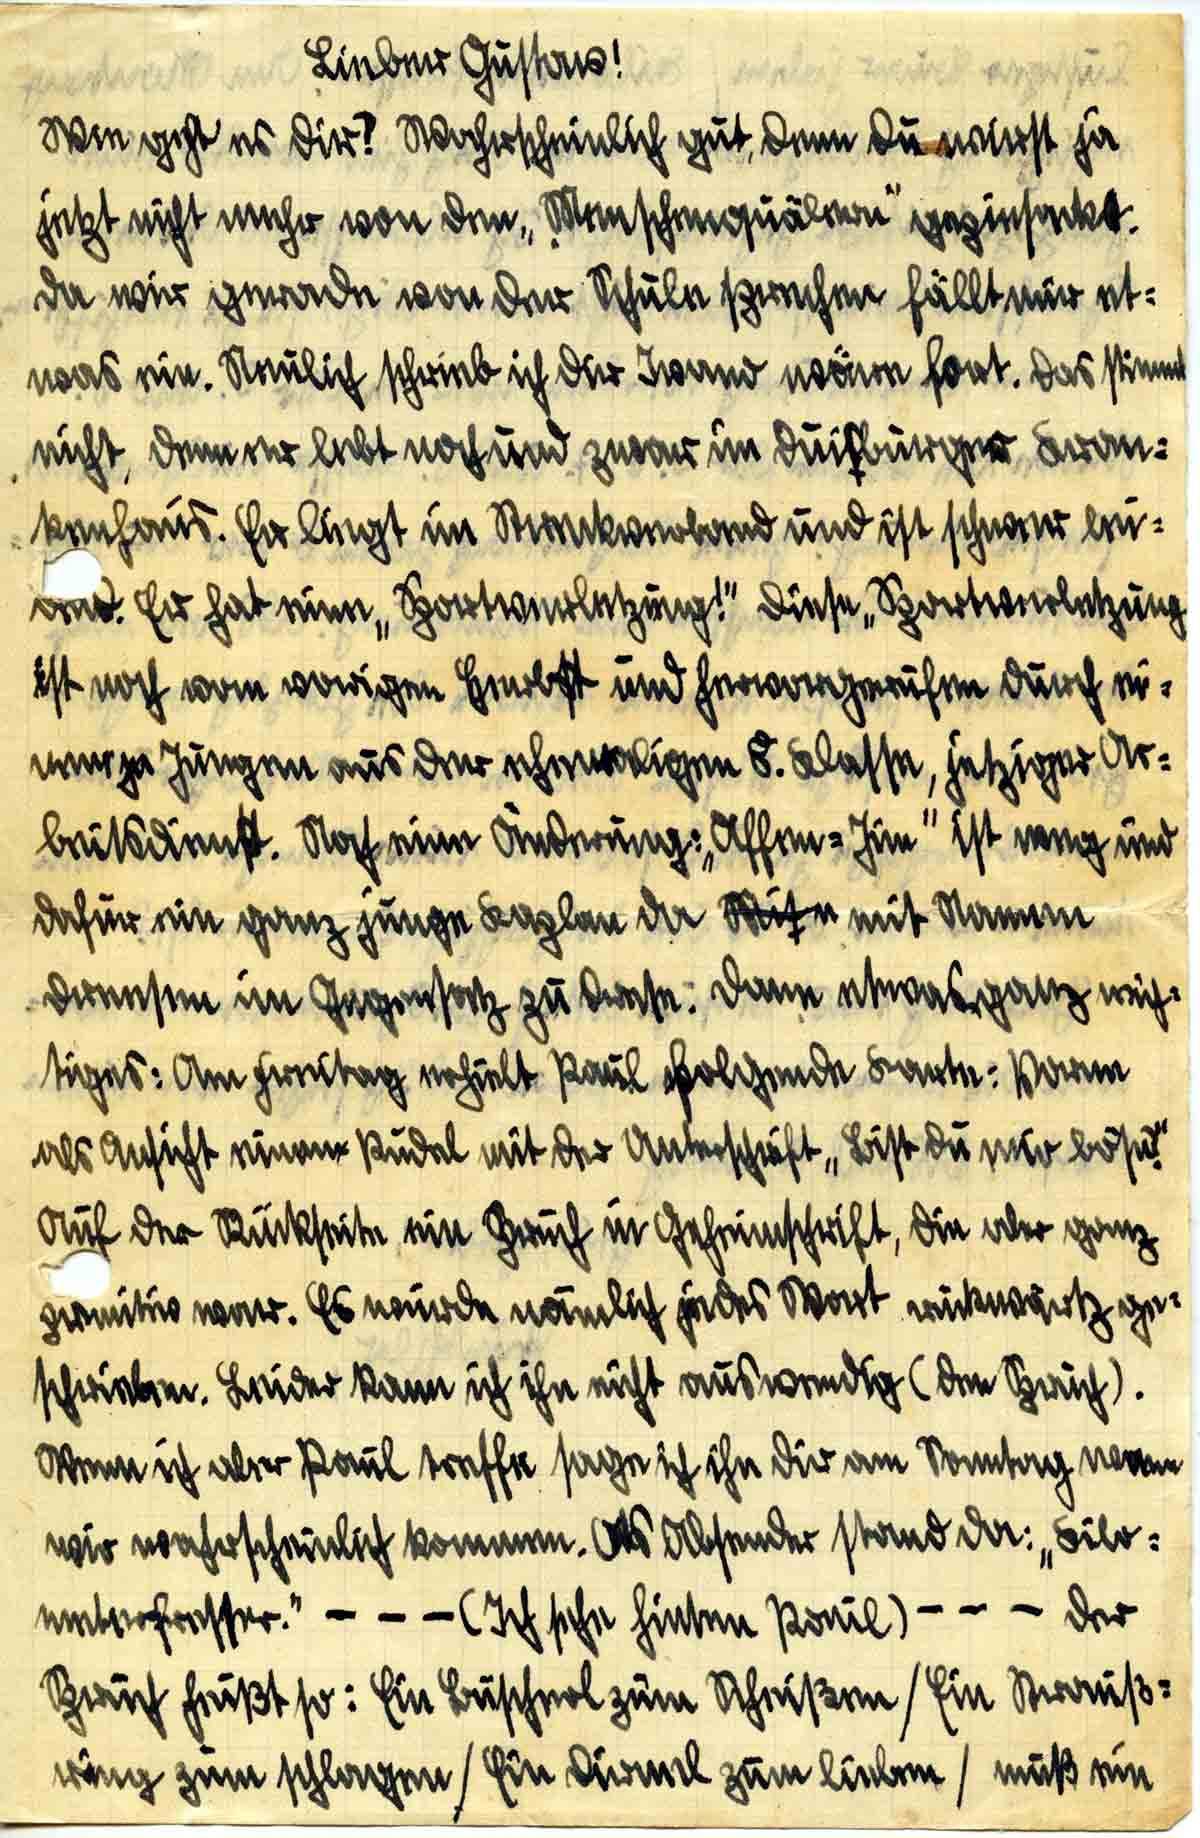 Lieber Gustav!
Wie geht es Dir? Wahrscheinlich gut, denn Du wirst ja
jetzt nicht mehr von den „Menschenquälern"
Da wir gerade von der Schule sprechen fällt mir et=
was ein. Neulich schrieb ich Dir Iwand wäre fort. Das stimmt
nicht, denn er lebt noch und zwar im Duisburger Kran=
kenhaus. Er liegt im Streckverband und ist schwer lei=
dend. Er hat eine „Sportverletzung!" Diese „Sportverletzung
ist noch vom vorigen Herbst und hervorgerufen durch ei=
nen Jungen aus der ehemaligen 8. Klasse, jetziger Ar=
beitsdienst. Noch eine Änderung: „Affen=Jim" ist weg und
dafür ein ganz junge Kaplan da mit Namen
im Gegensatz zu Dann etwas ganz wich=
tiges: Am Freitag erhielt Paul folgende Karte: Vorne
als Ansicht einen Pudel mit der Unterschrift „Bist du mir böse?"
Auf der Rückseite ein Spruch in Geheimschrift, die aber ganz
primitiv war. Es wurde nämlich jedes Wort rückwärtz ge=
schrieben. Leider kann ich ihn nicht auswendig (den Spruch).
Wenn ich aber Paul treffe sage ich ihn Dir am Sonntag wenn
wir wahrscheinlich kommen. Als Absender stand da: „Kilo=
meterfresser." – – – (Ich sehe hinten Paul) – – – Der
Spruch heißt so: Ein Büscherl zum Schießen / Ein Strauß=
ring zum schlagen / Ein Dirndl zum lieben / muß ein